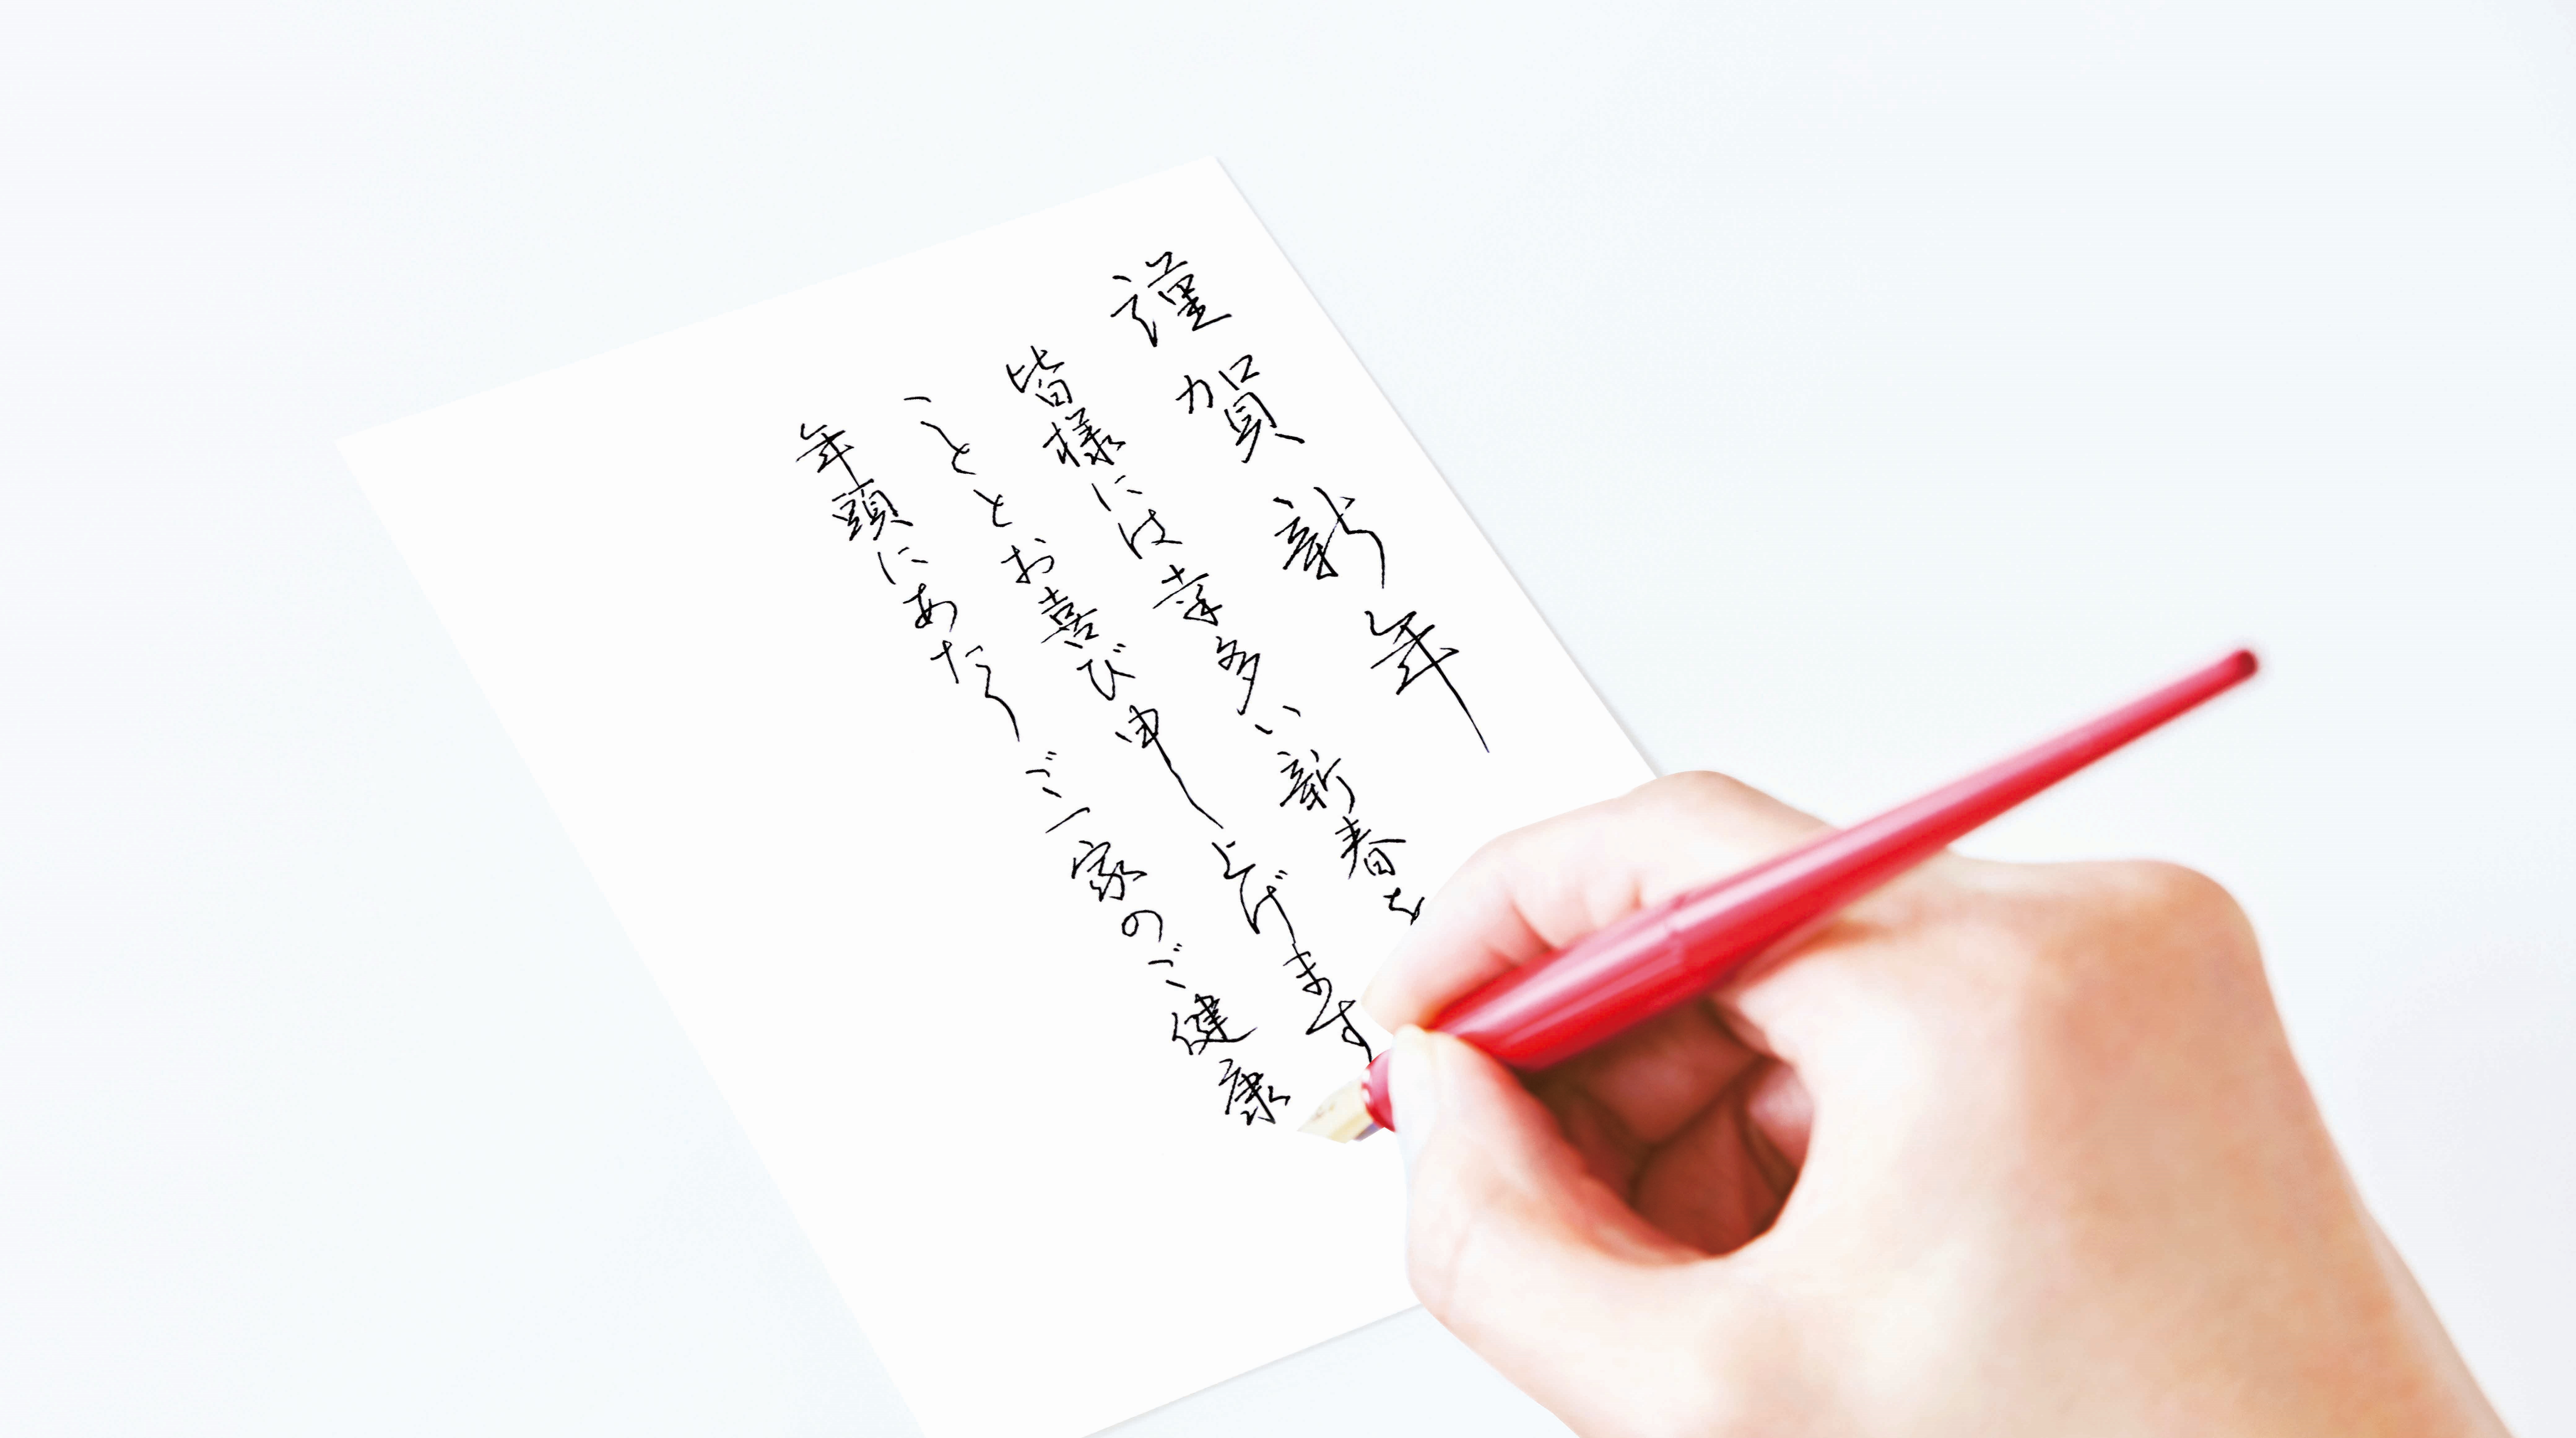 謹賀新年
皆様には幸多い新春を
こととお喜び申し上げます
年頭にあたりご一家のご健康